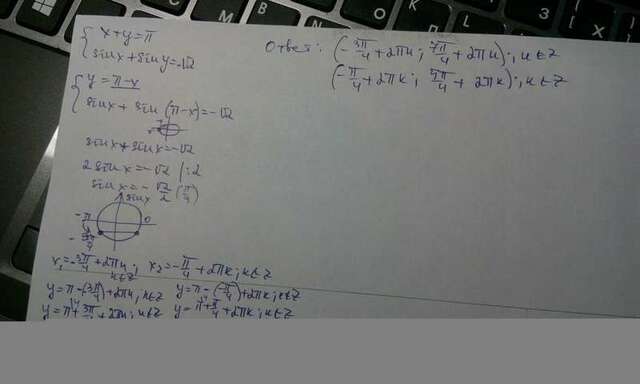 { x+y=π
sinx+siny=-√2
{ y=π-x
sinx+sin(π-x)=-√2
sinx+sinx=-√2
2sinx=-√2 |:2
sinx=-√2/2 (π/4)
sinx
-π 0
-3π/4
x₁=-3π/4+2πn; n∈Z x₂=-π/4+2πk; k∈Z
y=π-(-3π/4)+2πn; n∈Z y=π-(-π/4)+2πk; k∈Z
y=π+3π/4+2πn; n∈Z y=π+π/4+2πk; k∈Z
Ответ: (-3π/4+2πn; 7π/4+2πn); n∈Z
(-π/4+2πk; 5π/4+2πk); k∈Z